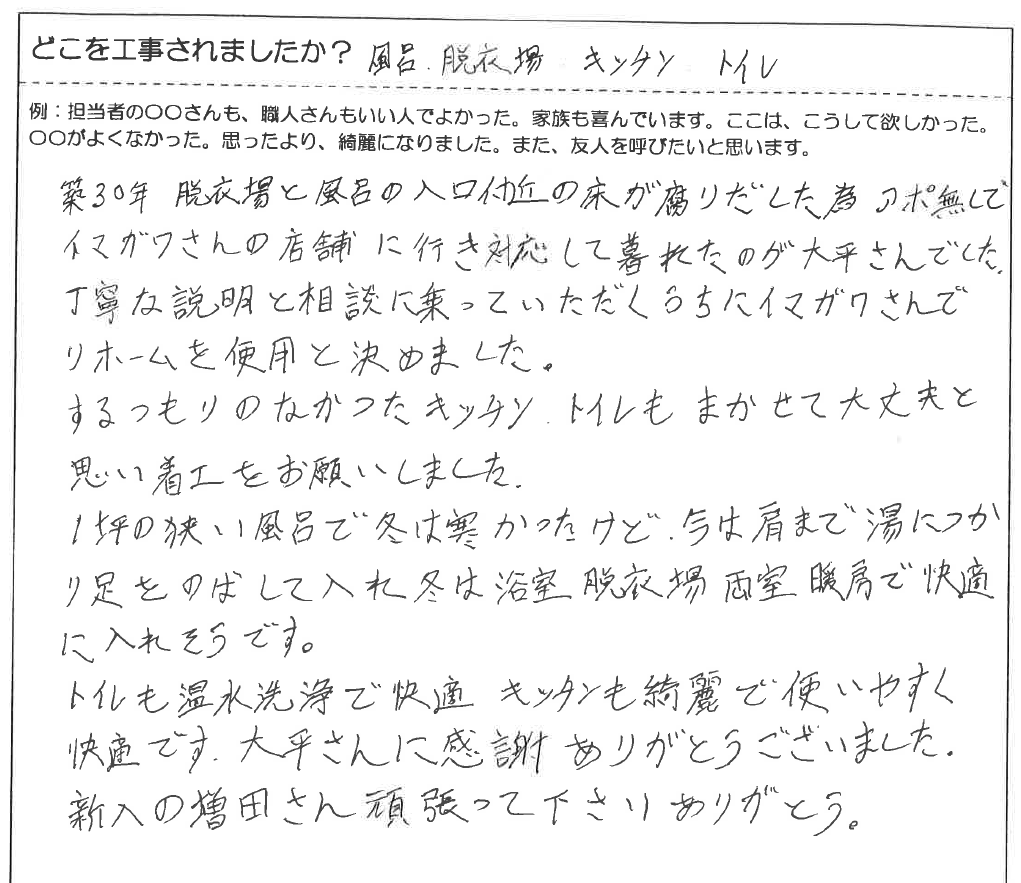 どこを工事されましたか？ 風呂.脱衣場 キッチン トイレ
例：担当者の〇〇さんも、職人さんもいい人でよかった。家族も喜んでいます。ここは、こうして欲しかった。
〇〇がよくなかった。思ったより、綺麗になりました。また、友人を呼びたいと思います。
築30年 脱衣場と風呂の入口付近の床が腐りだした為 アポ無しで
イマガワさんの店舗に行き対応して暮れたのが大平さんでした.
丁寧な説明と相談に乗っていただくうちにイマガワさんで
リホームを使用と決めました。
するつもりのなかったキッチン.トイレもまかせて大丈夫と
思い着工をお願いしました.
1坪の狭い風呂で冬は寒かったけど.今は肩まで湯につか
り足をのばして入れ冬は浴室 脱衣場 両室 暖房で快適
に入れそうです。
トイレも温水洗浄で快適 キッチンも綺麗で使いやすく
快適です.大平さんに感謝 ありがとうございました.
新入の増田さん頑張って下さい ありがとう。